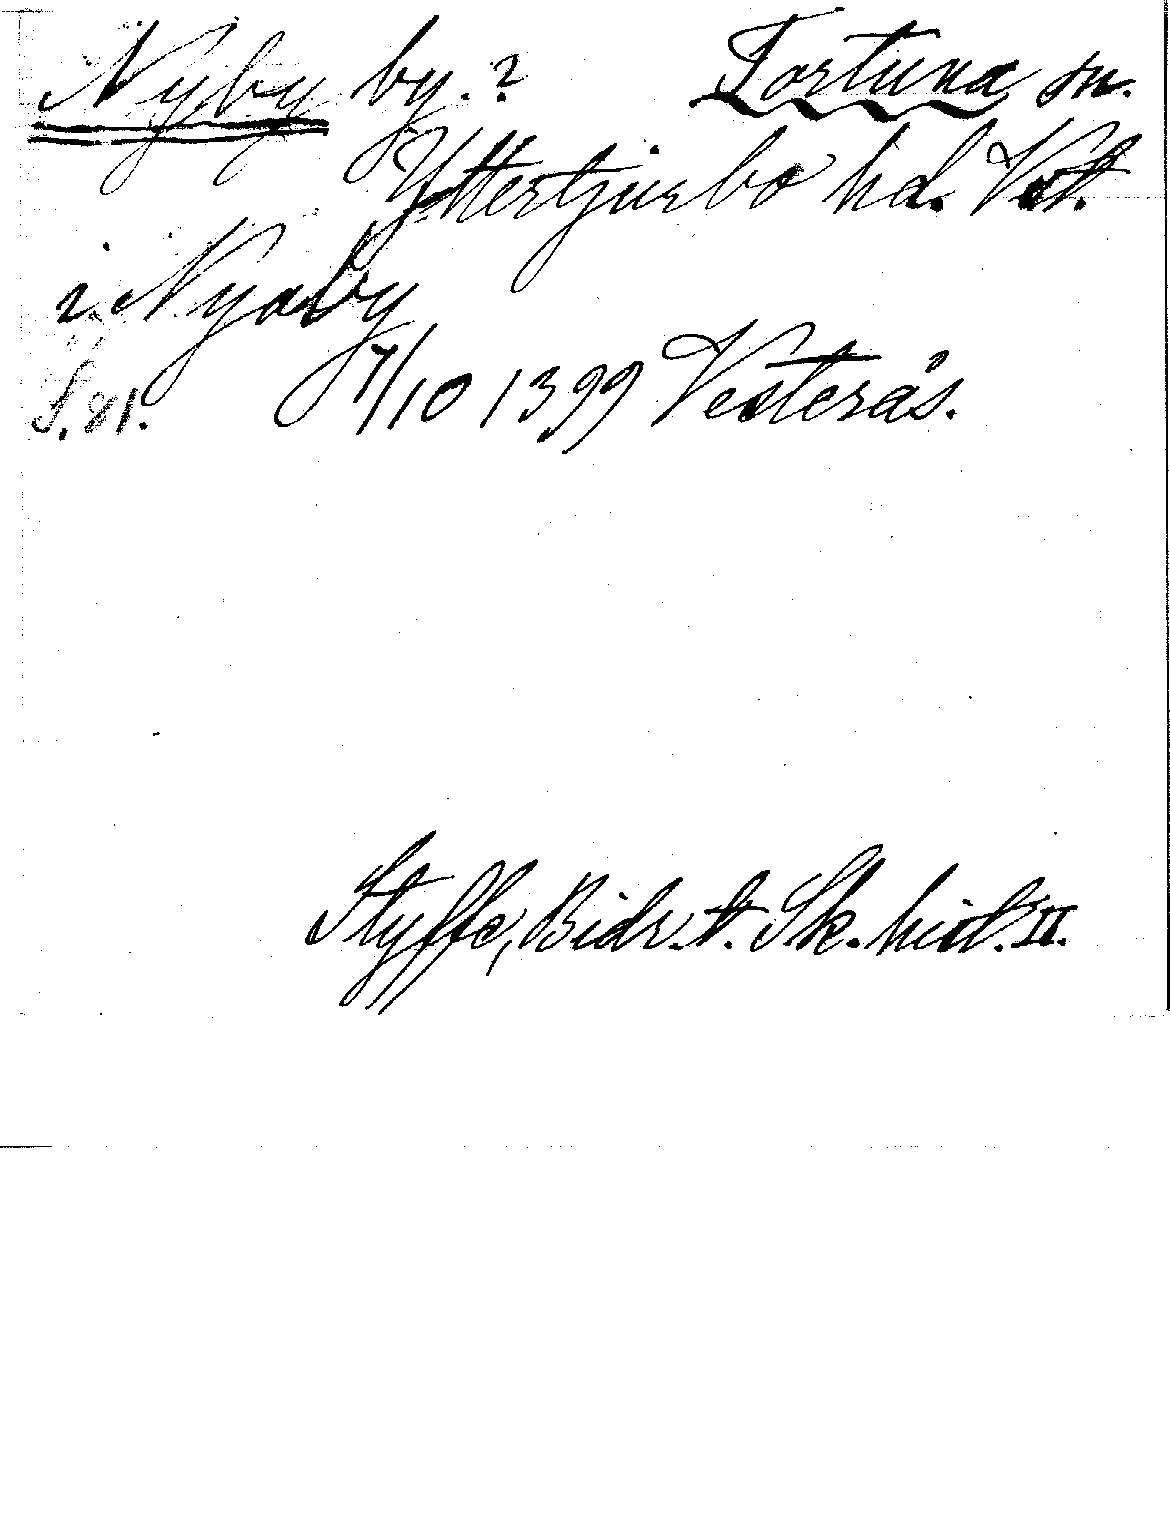 Nyby by.? Tortuna sn.
Yttertjurbo hd. Vstl.
i Nyaby
S. 81. 7/10 1399 Vesterås.
Styffe, Bidr. t. Sk. hist. II.